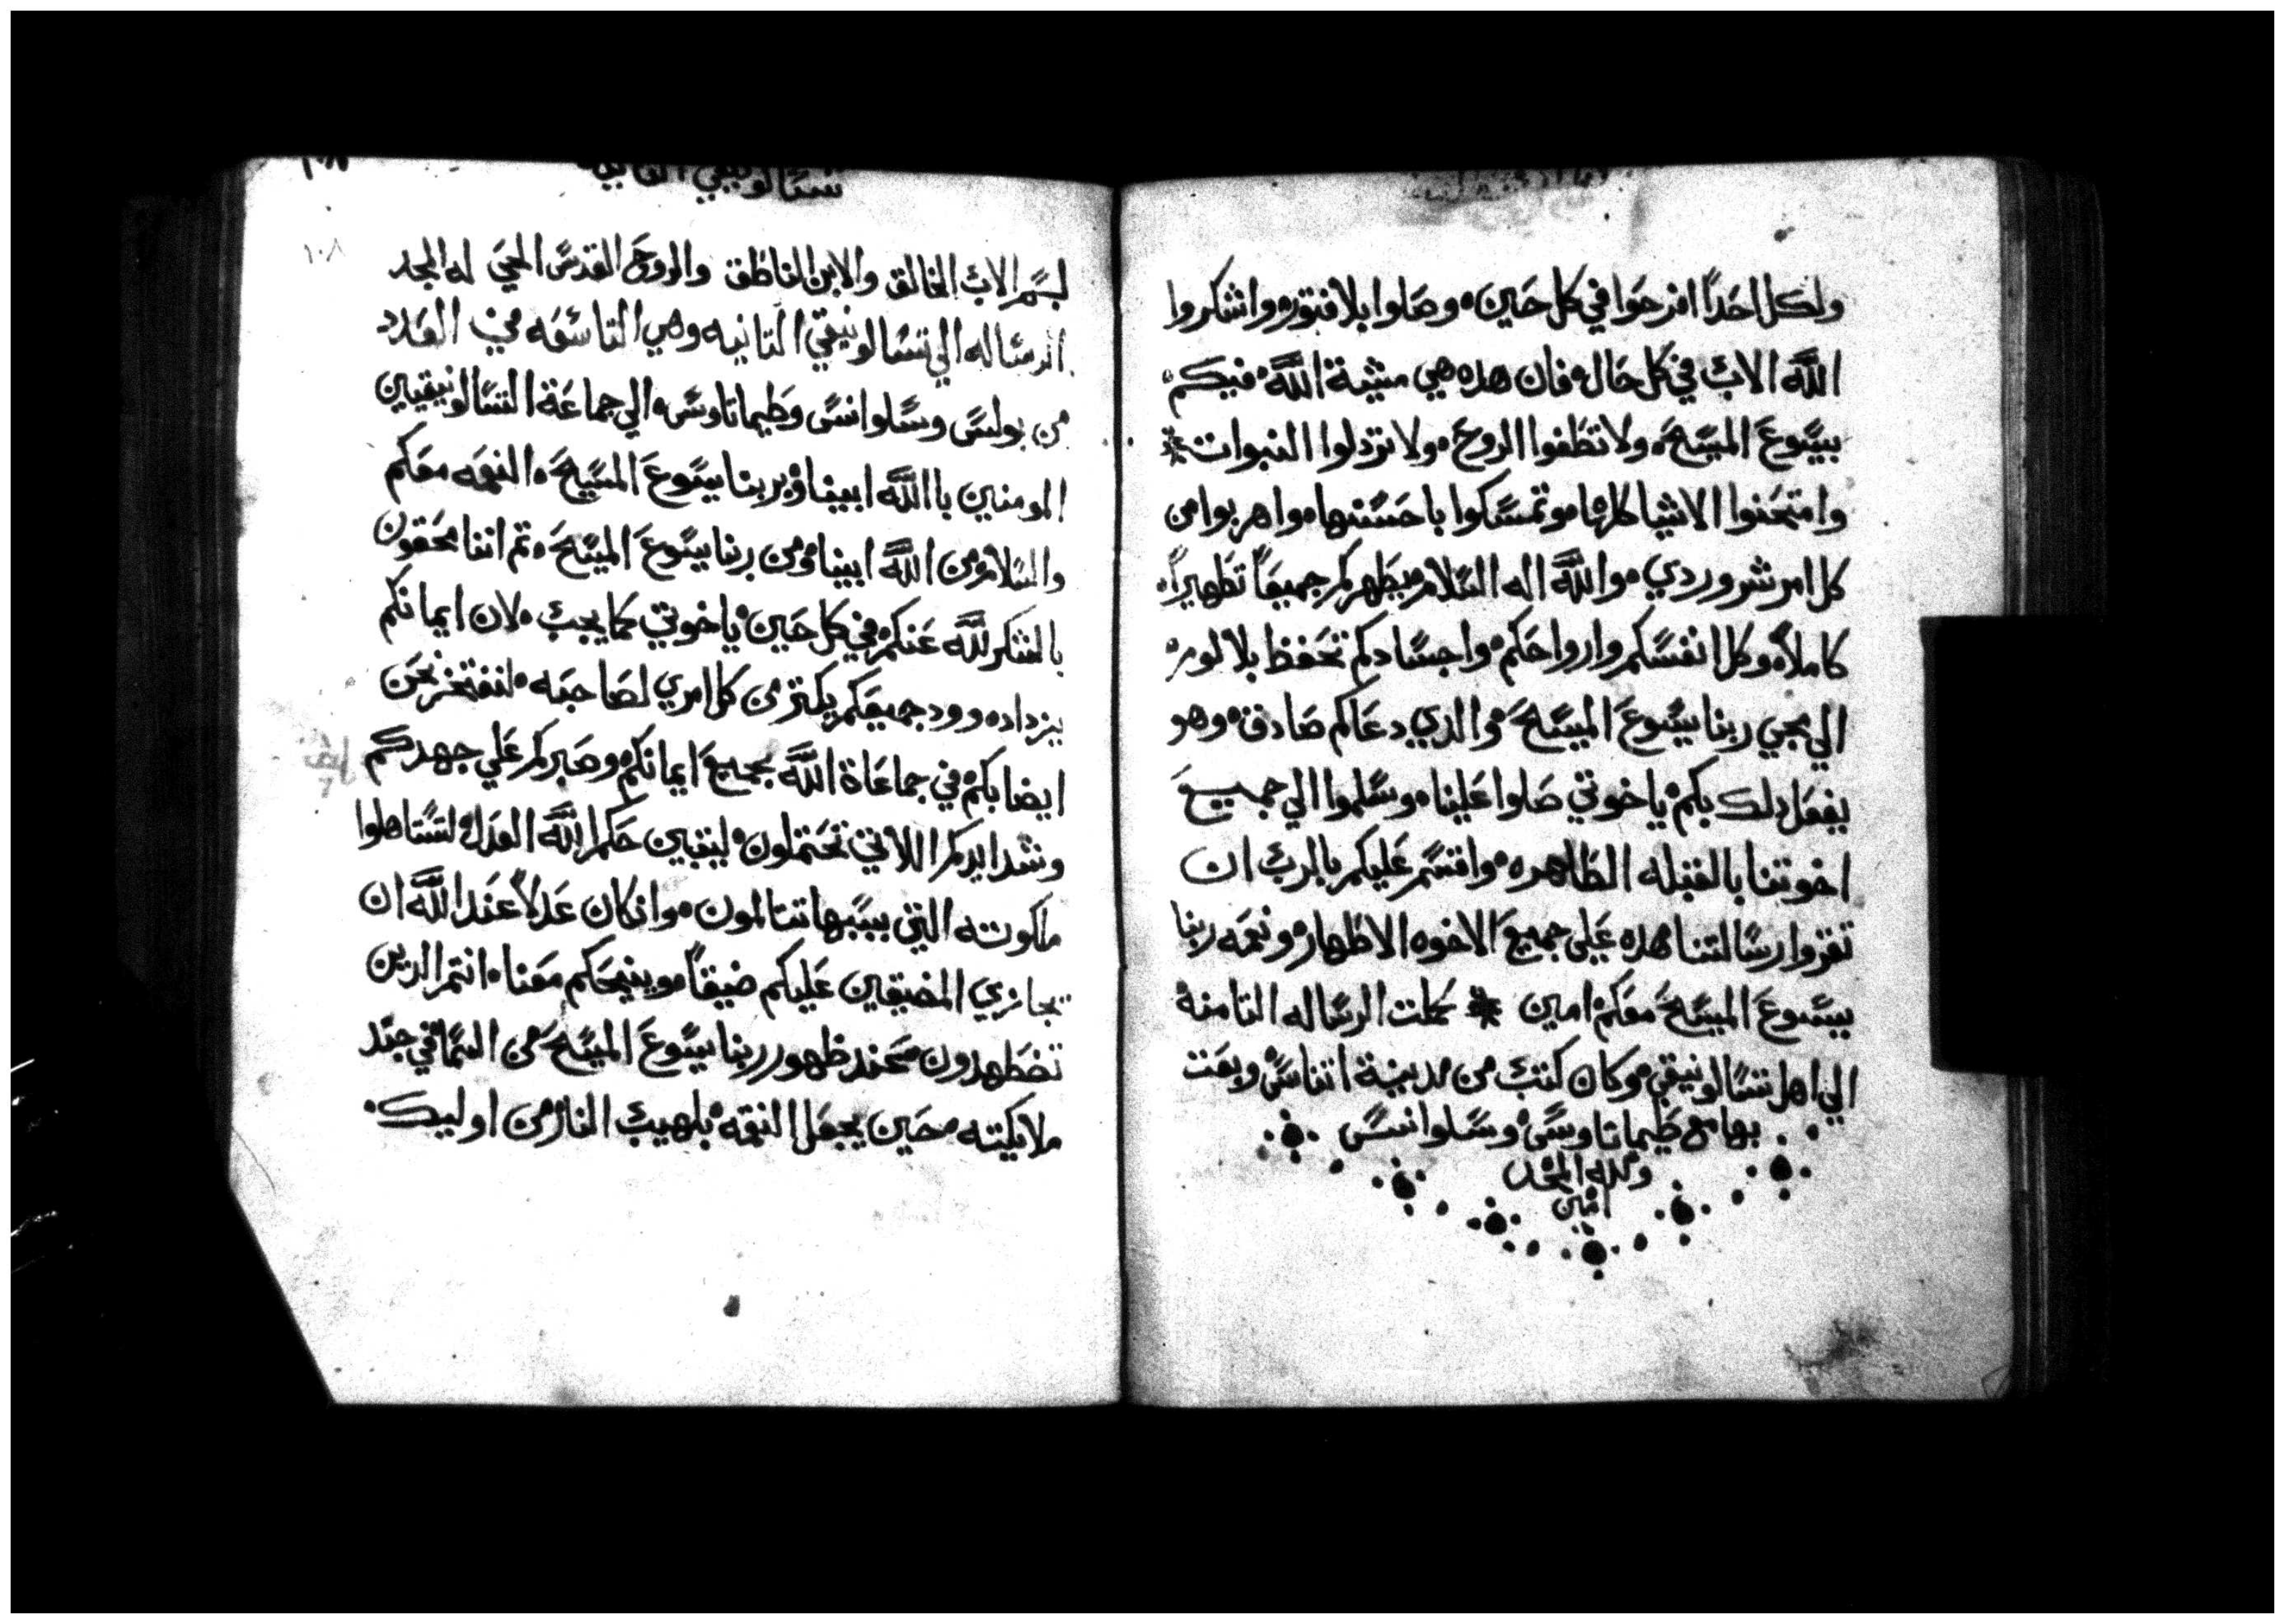 ولكل احدًا افرحوا في كل حين ٠ وصلوا بلا فتور ٠ واشكروا
الله الاب في كل حال ٠ فان هده هي مشية الله فيكم ٠
بيسوع المسيح ٠ ولا تطفوا الروح ٠ ولا تردلوا النبوات
وامتحنوا الاشيا كلها ٠ وتمسكوا باحسنها ٠ واهربوا من
كل امر شر وردي ٠ والله اله السلام يطهركم جميعًا تطهيرًا ٠
كاملًا ٠ وكل انفسكم وارواحكم ٠ واجسادكم تحفظ بلا لوم ٠
الي مجي ربنا يسوع المسيح ٠ والدي دعاكم صادق ٠ وهو
يفعل دلك بكم ٠ ياخوتي صلوا علينا ٠ وسلموا الي جميع
اخوتنا بالقبله الطاهره ٠ واقسم عليكم بالرب ان
تقروا رسالتنا هده علي جميع الاخوه الاطهار ٠ ونعمه ربنا
يسوع المسيح معكم امين كملت الرساله التامنة
الي اهل تسالونيقي ٠ وكان كتب من مدينة اتناس ٠ وبعت
بها مع طيماتاوس ٠ وسلوانس
ولله المجد
امين
تسالونيقي التانيه
١٠٨
بسم الاب الخالق والابن الناطق والروح القدس المحي له المجد
الرساله الي تسالونيقي التانيه وهي التاسعه في العدد
من بولس وسلوانس وطيماتاوس ٠ الي جماعة التسالونيقيين
المومنين باالله ابينا ٠ وبربنا يسوع المسيح ٠ النعمه معكم
والسلام من الله ابينا ٠ ومن ربنا يسوع المسيح ٠ تم اننا محقون
بالشكر لله عنكم في كل حين ٠ ياخوتي كما يجب ٠ لان ايمانكم
يزداد ٠ وود جميعكم يكتر من كل امري لصاحبه ٠ لنفتخر نحن
ايضا بكم في جماعاة الله بجميع ايمانكم ٠ وصبركم علي جهدكم
وشدايدكم اللاتي تحتملون ٠ ليتبين حكم الله العدل ٠ لتستاهلوا
ملكوته التي بسببها تتالمون ٠ وان كان عدلًا عند الله ان
تجازي المضيقين عليكم ضيقًا ٠ وينيحكم معنا ٠ انتم الدين
تضطهدون ٠ عند ظهور ربنا يسوع المسيح ٠ من السما في جند
ملايكته ٠ حين يجعل النقمه بلهيب النار من اوليك ٠